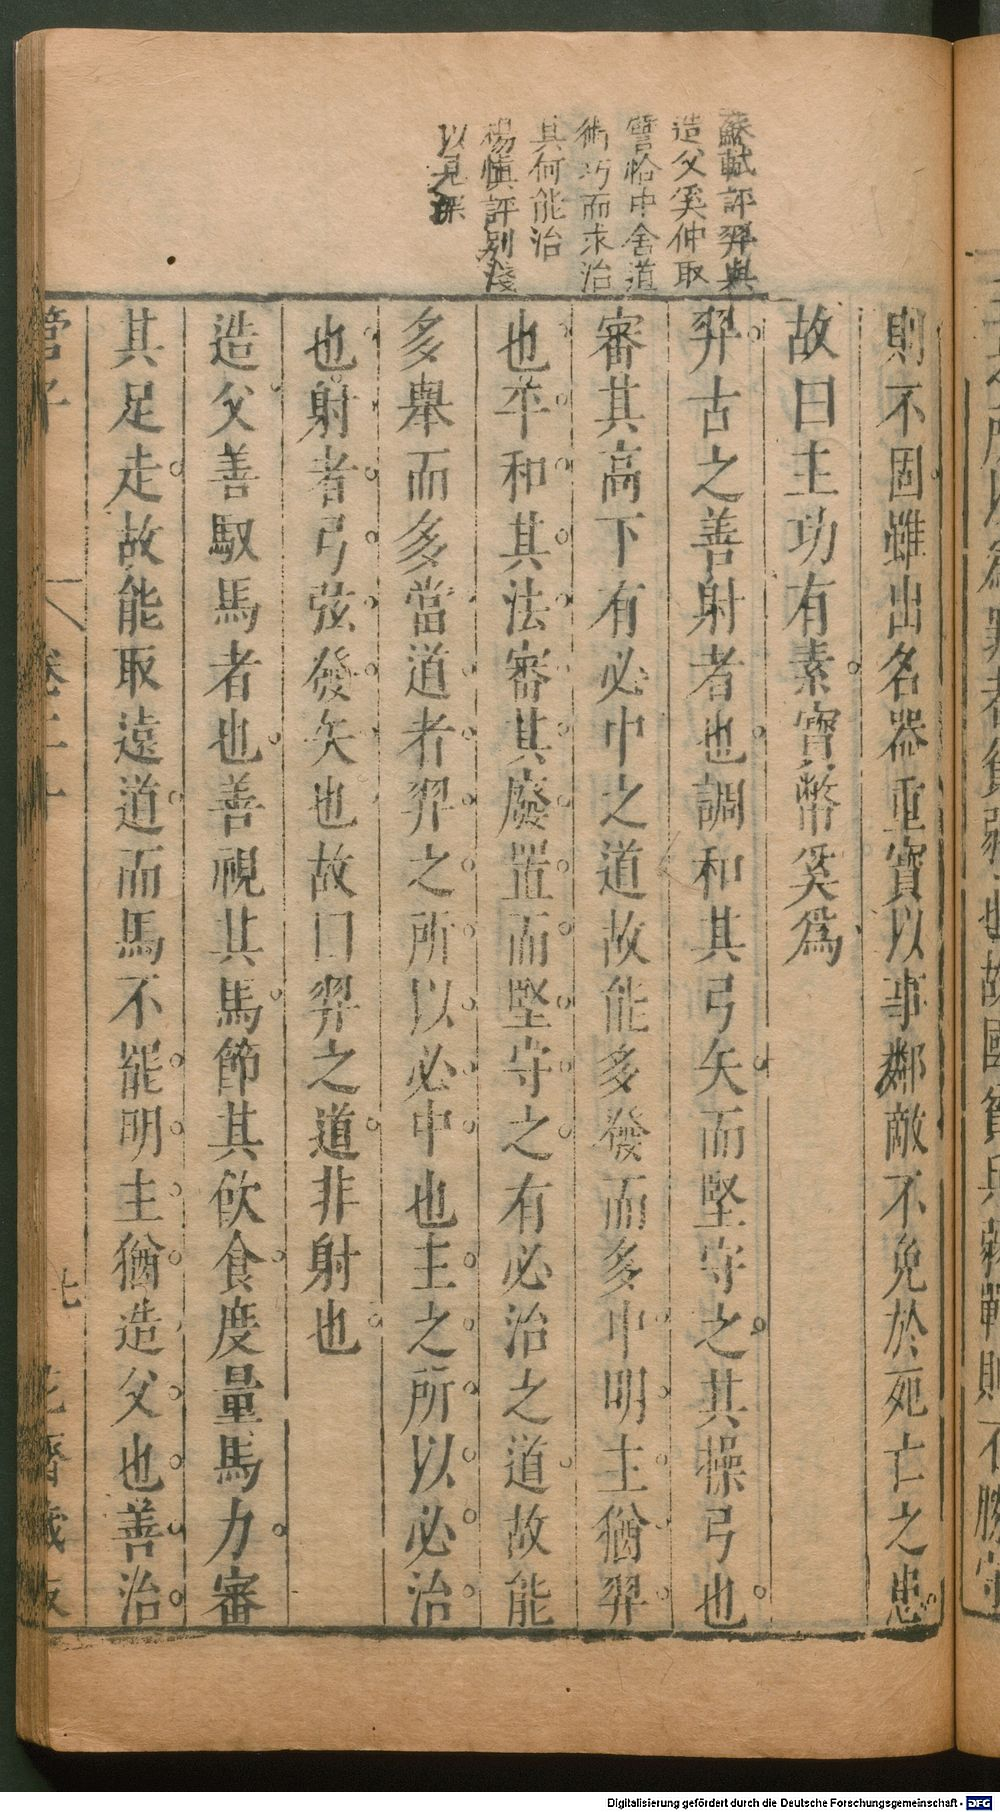 蘇軾評羿與
造父奚仲取
譬恰中舍道
術巧而求治
其何能治
楊慎評別淺
以見深
則不固雖出名器重寶以事鄰敵不免於死亡之患
故曰主功有素寶幣奚為
羿古之善射者也調和其弓矢而堅守之其操弓也
審其高下有必中之道故能多發而多中明主猶羿
也平和其法審其廢置而堅守之有必治之道故能
多舉而多當道者羿之所以必中也主之所以必治
也射者弓弦發矢也故曰羿之道非射也
造父善馭馬者也善視其馬節其飲食度量馬力審
其足走故能取遠道而馬不罷明主猶造父也善治
管子
卷二十
七
花齋藏板
Digitalisierung gefördert durch die Deutsche Forschungsgemeinschaft - DFG